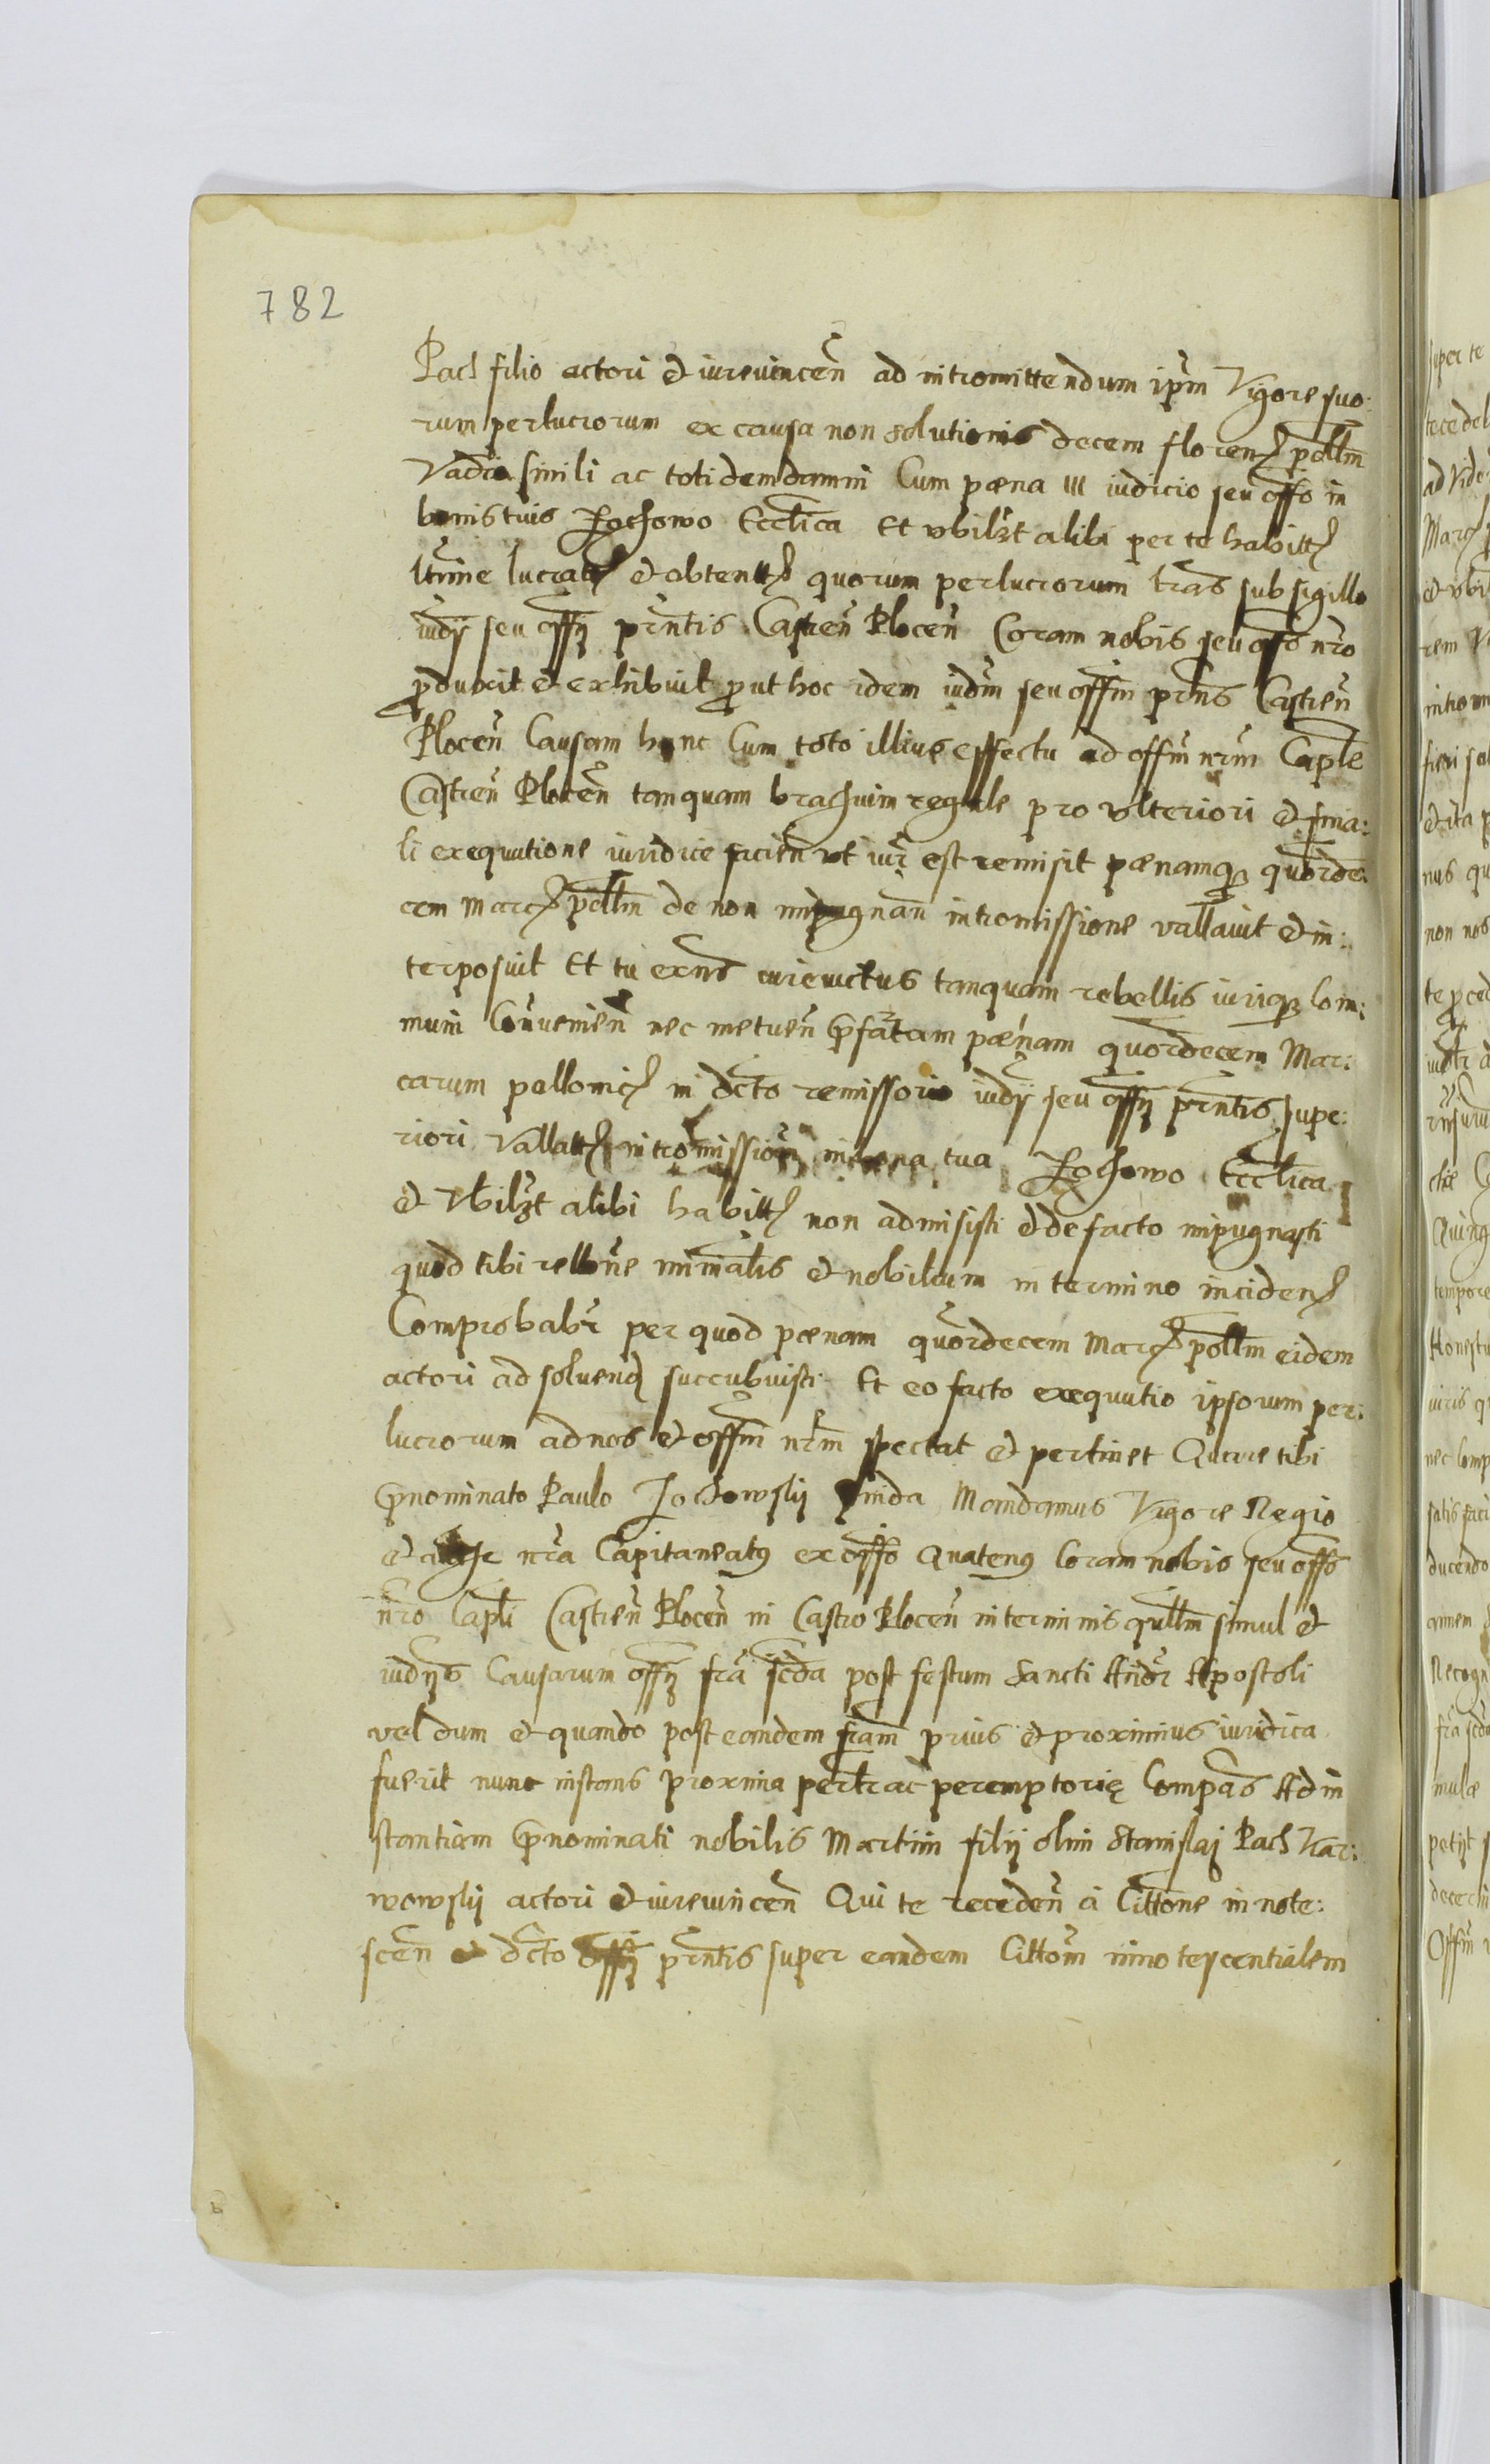 782
Pach filio actori et iurevincen̄ ad intromittendum ipm̄ Vigore suo:
rum perlucrorum ex causa non solutionis decem floren pollm̄
Vadio simili ac totidem damni Cum pæna III iudicio seu offō in
bonis tuis Żochowo Eccl̄ica Et vbilzt alibi per te habitt
ltt̄ime lucratt et obtentt quorum perlucrorum lrās sub sigillo
iudy seu offy prn̄tis Castren̄ Plocen̄ Coram nobis seu offō nrō
produxit et exhibuit prout hoc idem iudm̄ seu offm̄ prn̄s Castren̄
Plocen̄ Causam hanc Cum toto illius effectu ad offm̄ nrm̄ Caple
Castren̄ Plocen̄ tanquam brachium regale pro vlteriori et fina:
li exequutione iuridice facien̄ vt iurȷ est remisit pænamqꝫ quordē:
cem Marc pollm̄ de non impugnan̄ intromissione vallauit et in:
terposuit Et tu exn̄s iurevictus tanquam rebellis iuriqꝫ Com:
muni Conuenien̄ nec metuen̄ prēfatam pænam quordecem Mar:
carum pollonic in dctō remissorio iudy seu offy prn̄tis supe:
riori Vallatt intromissionē in bona tua Żochowo Eccl̄ica
et Vbilzt alibi habitt non admisisti et de facto impugnasti
quod tibi rellonē minālis et nobilium in termino inciden
Comprobabr̄ per quod pænam quordecem Marc pollm̄ eidem
actori ad soluend succubuisti Et eo facto exequutio ipsorum per:
lucrorum ad nos et offm̄ nrm̄ spectat et pertinet Quare tibi
prēnominato Paulo Żochowsky Mandamus Vigore Regio
et nrā Capitaneatus ex offō Quatenus Coram nobis seu offō
nrō Capli Castren̄ Plocen̄ in Castro Plocen̄ in terminis qullm̄ simul et
iudys Causarum offy frā scdā post festum Sancti Andr̄ Apostoli
vel dum et quando post eandem fram̄ prius et proximius iuridica
fuerit nunc instans proxima pertrāc peremptorię Compās Ad in
stantiam prēnominati nobilis Martini filij olim Stanislaj Pach Kar:
wowsky actori et iurevincen̄ Qui te receden̄ à Cittōne innote:
scen̄ et dctō offy prn̄tis super eandem Cittōm innotescentialem